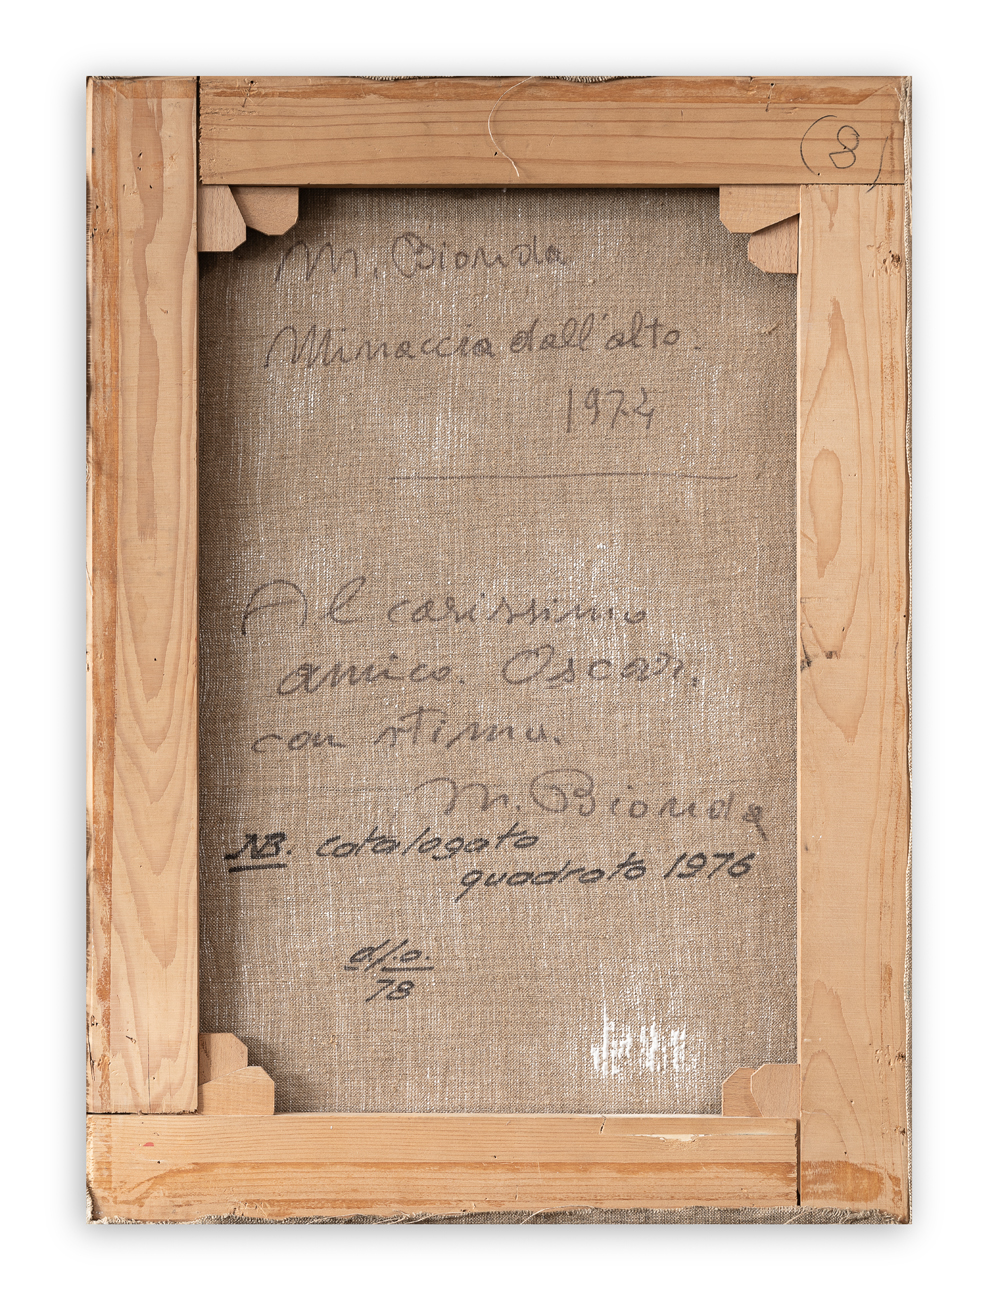 (8)
M. Bionda
Minaccia dall'alto.
1974
Al carissimo
amico. Oscar.
con stima.
M. Bionda
NB. catalogato
quadrato 1976
d/.o.
78